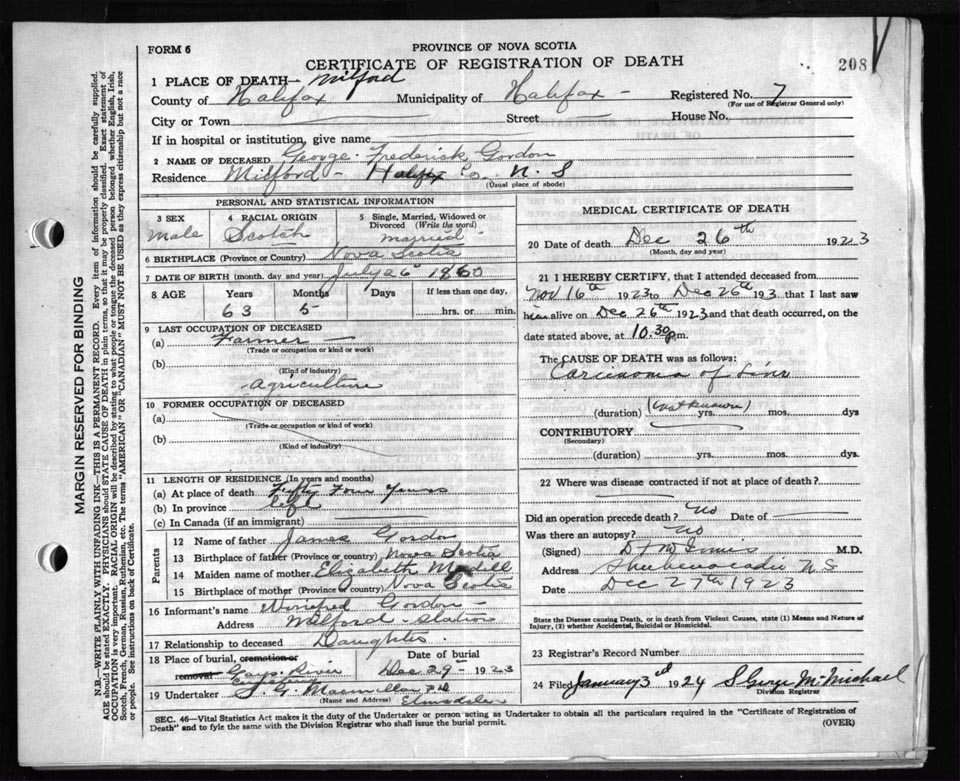 FORM 6
PROVINCE OF NOVA SCOTIA
CERTIFICATE OF REGISTRATION OF DEATH
208
1 PLACE OF DEATH— Milford
County of Halifax Municipality of Halifax – Registered No. 7
(For use of Registrar General only)
City or Town Street House No.
If in hospital or institution, give name
2 NAME OF DECEASED George Frederick Gordon
Residence Milford – Halifax Co. N. S
(Usual place of abode)
PERSONAL AND STATISTICAL INFORMATION
3 SEX Male
4 RACIAL ORIGIN Scotch
5 Single, Married, Widowed or Divorced (Write the word) married
6 BIRTHPLACE (Province or Country) Nova Scotia
7 DATE OF BIRTH (month, day and year) July 26 1860
8 AGE Years Months Days If less than one day,
63 5 hrs. or min.
9 LAST OCCUPATION OF DECEASED
(a) Farmer
(Trade or occupation or kind or work)
(b)
(Kind of industry)
Agriculture
10 FORMER OCCUPATION OF DECEASED
(a)
(Trade or occupation or kind of work)
(b)
(Kind of industry)
11 LENGTH OF RESIDENCE (In years and months)
(a) At place of death Fifty Four Years
(b) In province life
(c) In Canada (if an immigrant)
Parents
12 Name of father James Gordon
13 Birthplace of father (Province or country) Nova Scotia
14 Maiden name of mother Elizabeth
15 Birthplace of mother (Province or country) Nova Scotia
16 Informant's name Winifred Gordon –
Address Milford – Station
17 Relationship to deceased Daughter
18 Place of burial, cremation or removal Gays River Cemetery
Date of burial Dec 29 – 1923
19 Undertaker S. G. Macmillan
(Name and Address) Elmsdale
MEDICAL CERTIFICATE OF DEATH
20 Date of death Dec 26th 1923
(Month, day and year)
21 I HEREBY CERTIFY, that I attended deceased from
Nov 16th 1923 to Dec 26th 193 that I last saw
him alive on Dec 26th 1923 and that death occurred, on
date stated above, at 10.30 p.m.
The CAUSE OF DEATH was as follows:
Carcinoma of
(duration) (not known) yrs. mos. dys
CONTRIBUTORY
(Secondary)
(duration) yrs. mos. dys
22 Where was disease contracted if not at place of death?
Did an operation precede death? No Date of
Was there an autopsy? No
(Signed) M.D.
Address Shubenacadie N S
Date Dec 27th 1923
State the Disease causing Death, or in Death from Violent Causes, state (1) Means and Nature of Injury, (2) whether Accidental, Suicidal or Homicidal.
23 Registrar's Record Number
24 Filed January 3rd 1924 S George McMichael
Division Registrar
SEC. 46—Vital Statistics Act makes it the duty of the Undertaker or person acting as Undertaker to obtain all the particulars required in the "Certificate of Registration of
Death" and to fyle the same with the Division Registrar who shall issue the burial permit. (OVER)
MARGIN RESERVED FOR BINDING
N.B.—WRITE PLAINLY WITH UNFADING INK—THIS IS A PERMANENT RECORD. Every item of information should be carefully supplied.
AGE should be stated EXACTLY. PHYSICIANS should STATE CAUSE OF DEATH in plain terms, so that it may be properly classified. Exact statement of
OCCUPATION is very important. RACIAL ORIGIN will be described by stating to what people or tongue the deceased person belonged whether English, Irish,
Scotch, French, German, Russian, Ruthenian, etc. The terms "AMERICAN" OR "CANADIAN" MUST NOT BE USED as they express citizenship but not a race
or people. See instructions on back of Certificate.